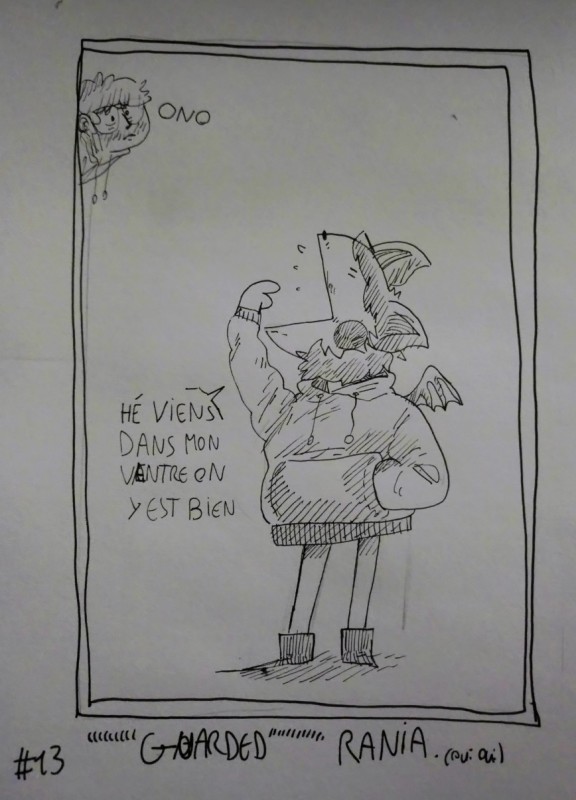 ONO
HÉ VIENS
DANS MON
VENTRE ON
Y EST BIEN
#13 """"""" GUARDED """""""" RANIA. (oui oui)